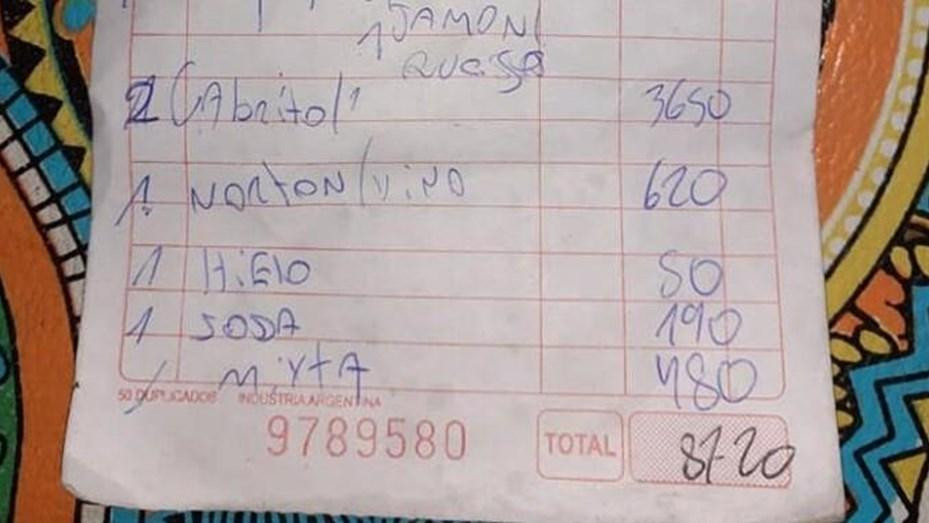 1 JAMON/
QUESSO
2 CAbrito/1 3650
1 NORTON/viNO 620
1 HiElO 50
1 SODA 190
/ MiXtA 480
50 DUPLICADOS INDUSTRIA ARGENTINA
9789580 TOTAL 8720